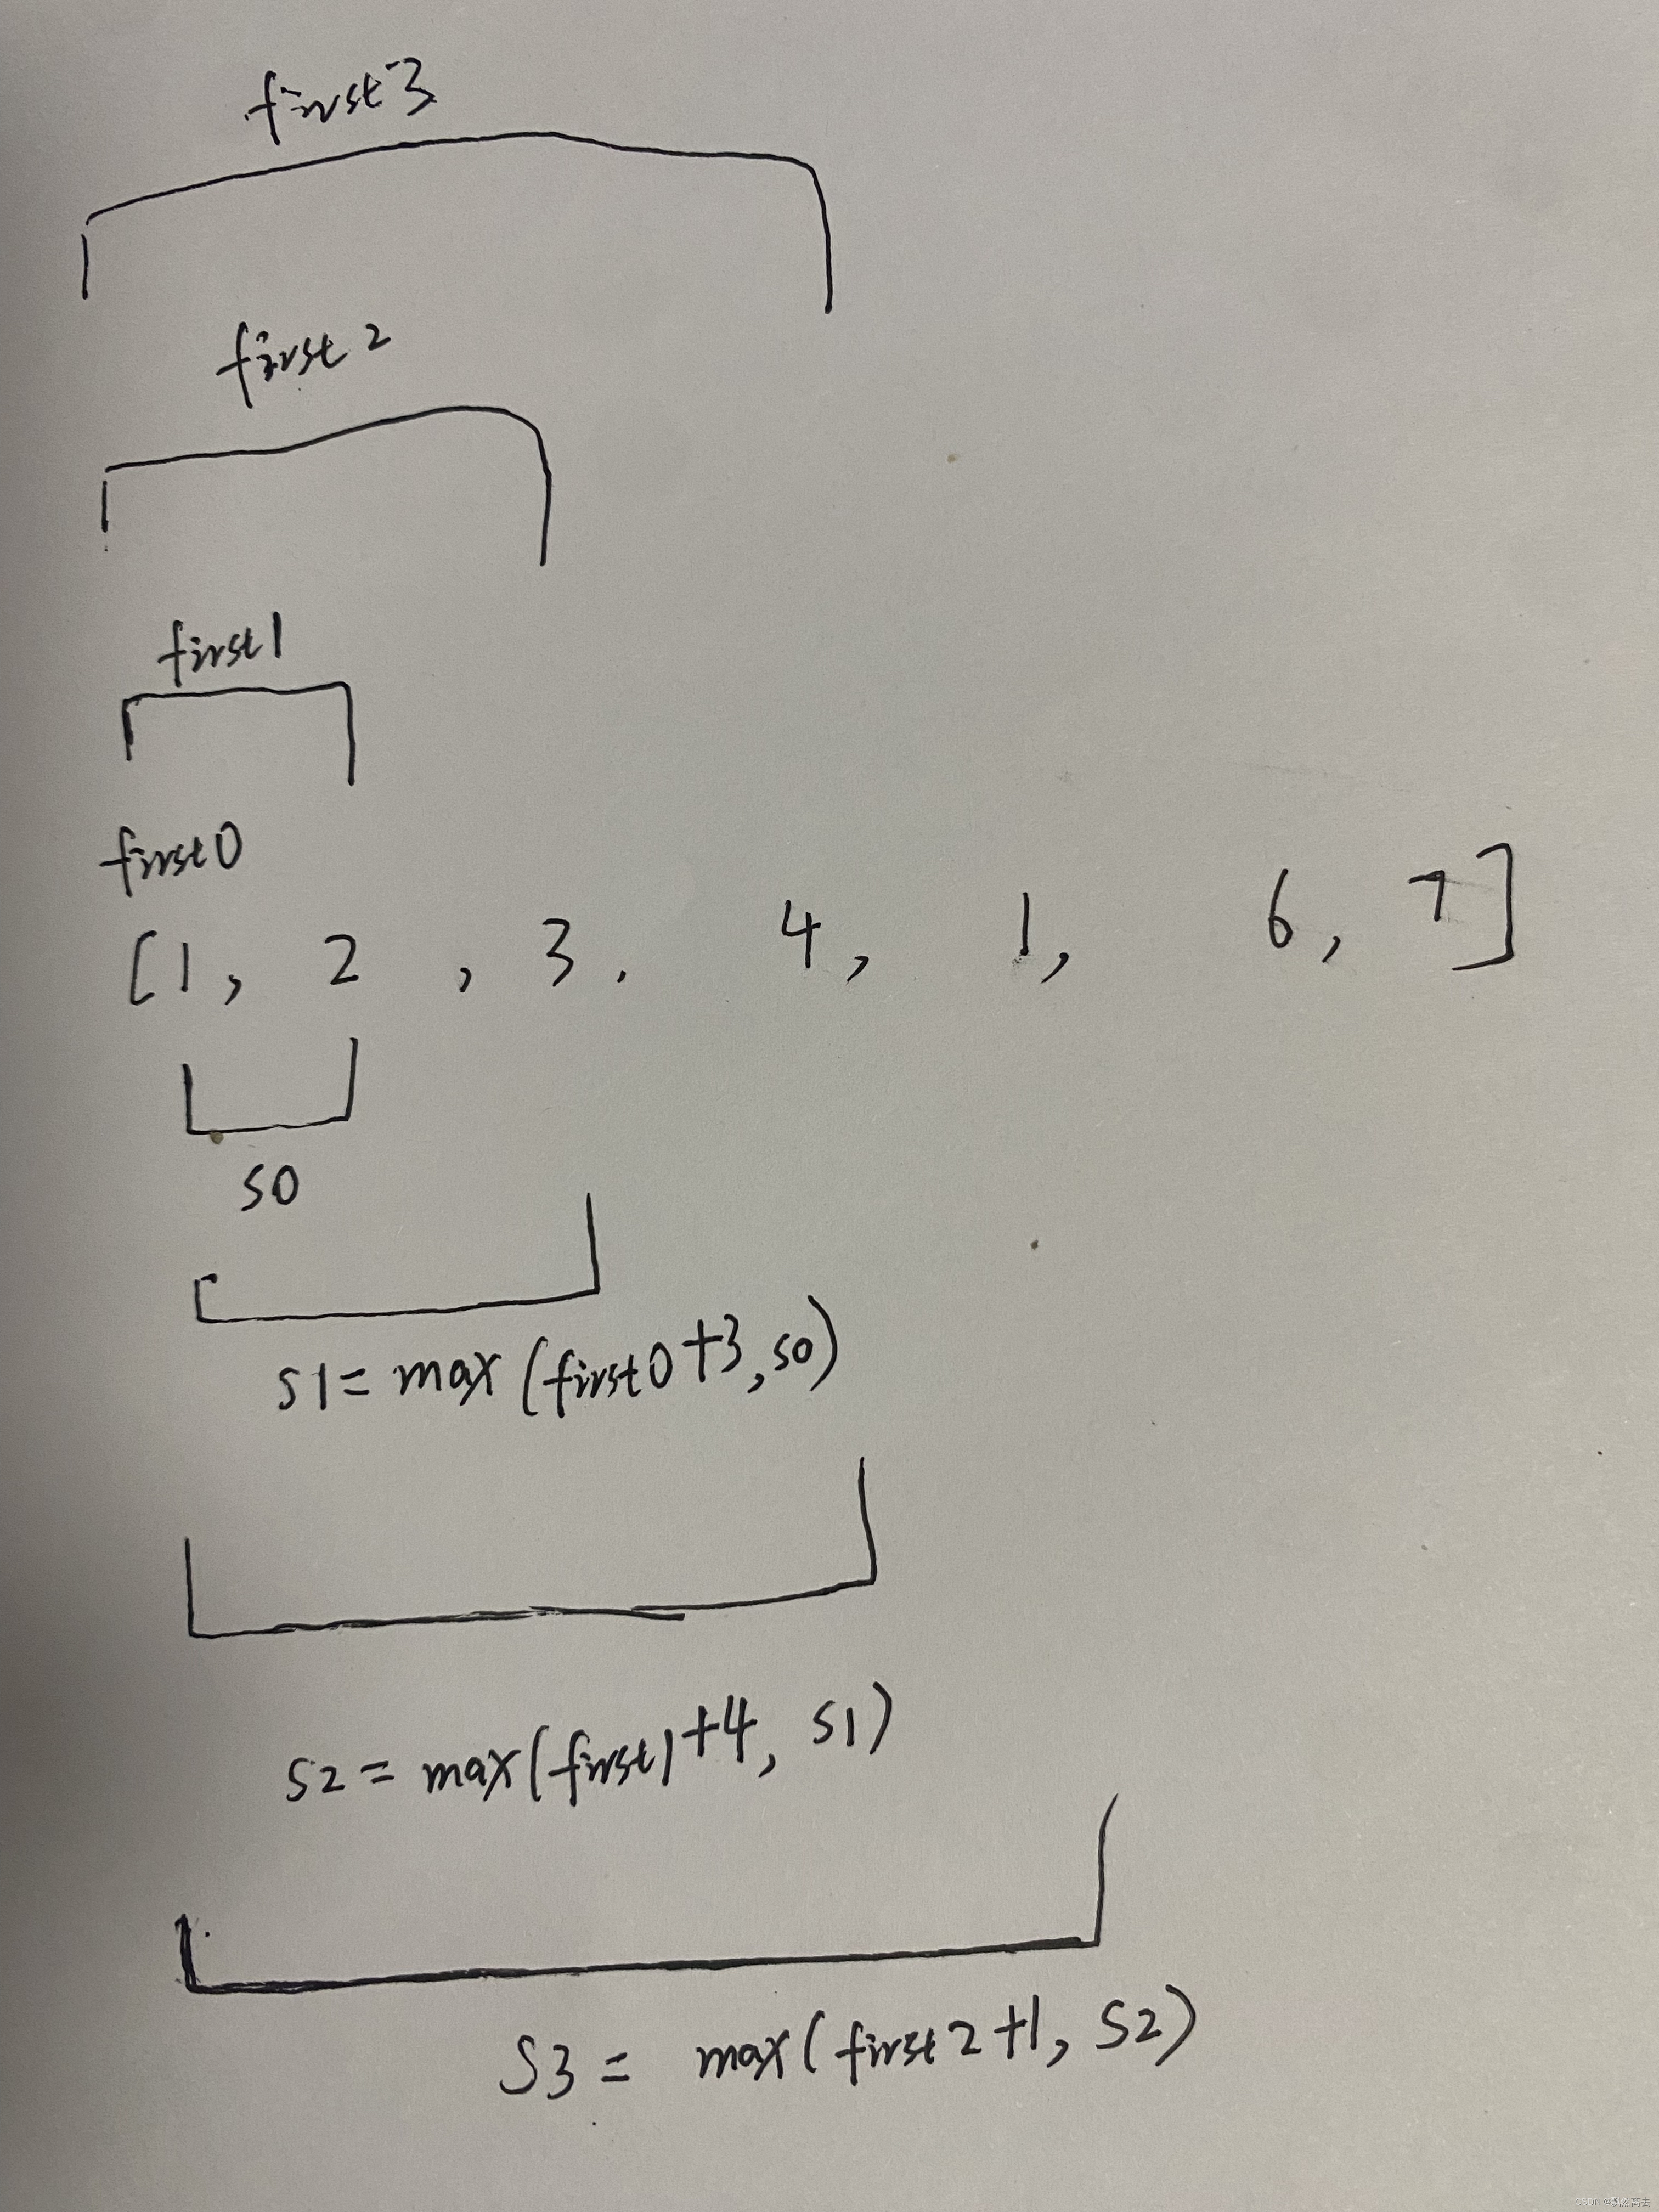 first3
first2
first1
first0
[1, 2, 3. 4, 1, 6, 7]
s0
s1=max(first0+3,s0)
s2=max(first1+4, s1)
S3= max(first2+1, S2)